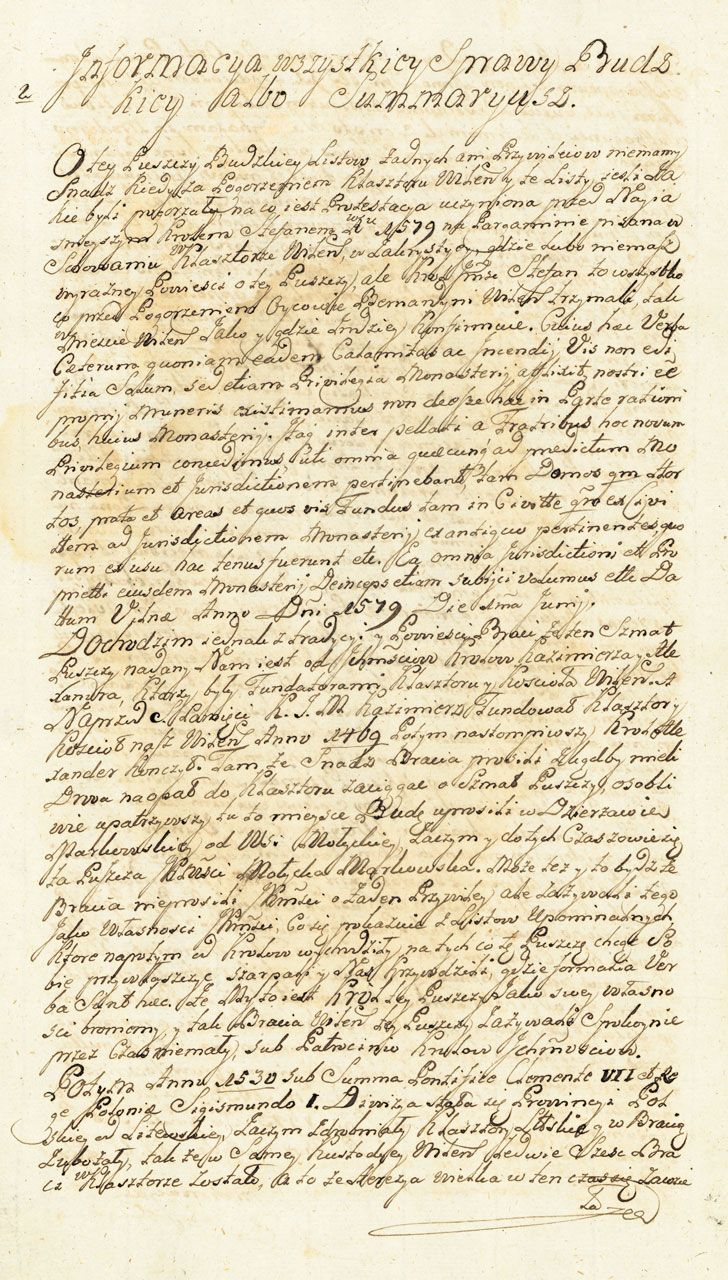 2
Informacya wszystkiey Sprawy Budz
kiey albo Summaryusz.
O tey Puszczy Budzkiey Listow żadnych ani Przywileiow niemamy
Snadz kiedy za Pogorzeniem Klasztoru Wilen y te Listy, iesli Ia
kie byli pogorzały, na co iest Protestacya uczyniona przed Nayia
snieyszym Krolem Stefanem Rku 1579 na Pargaminie pisana w
Schowaniu w Klasztorze Wilen, gdzie lubo niemasz
wyrazney Powiesci o tey Puszczy, ale Krol Jmść Stefan to wszystko
co przed Pogorzeniem Oycowie Bernardyni Wilen trzymali, tak
w Miescie Wilen Jako y gdzie indziey Konfirmuie. Cuius haec Verba
Ceterum quoniam eadem Calamitas ac Incendij Vis non edi
fitia Solum, sed etiam Privilegia Monasterij afflixit, nostri ee
proprij Muneris existimamus non deesse hac in Parte rationi
bus huius Monasterij. Itaq inter pellati a Fratribus hoc novum
Privilegium concedimus, Uti omnia quaecunq ad predictum Mo
nasterium et Jurisdictionem pertinebant, tam Domos qm Hor
tos, prata et Areas et quos vis Fundus tam in Civitte qm ex Civi
ttem ad Jurisdictionem Monasterij ex antiquo pertinentes, quo
rum ex usu hac tenus fuerunt etc. Ea omnia Jurisdictioni ett Pro
prietti eiusdem Monasterij Deinceps etiam subijci volumus ette Da
ttum Vilnae Anno Dni 1579 Die Junij.
Dochodzim iednak z tradycyi y Powiesci Braci że ten Szmat
Puszczy nadany Nam iest od Ichmściow Krolow Kazimierza y Ale
xandra, ktorzy byli Fundatorami Klasztoru y Kościoła Wilen. A
Naprzod S. Pamięci K. J. M. Kazimierz Fundował Klasztor y
Kościoł nasz Wilen Anno 1469 Potym nastempiwszy Krol Ale
xander konczył. Tam, że Snadz Bracia prosili Żegdby mieli
Drwa na opał do Klasztoru zaciągac o Szmat Puszczy, osobli
wie upatrzywszy tu to mieysce Budę uprosili w Dzierzawie
Markowskiey od Wsi Motyckiey, Zaczym y dotych Czasow iest
ta Puszcza Motycka Markowska. Może tez y to bydz że
Bracia nieprosili o żaden Przywiley ale zażywali tego
Jako Własnosci, Co się pokazuie z Listow Upominalnych
ktore napotym od Krolow wychodziły, na tych co tę Puszczę chcąc So
bie przywłaszczyc szarpali y Nas krzywdzili, gdzie formalia Ver
ba Sunt haec. Że My to iest Krol tey Puszczy Jako swey własno
sci bronimy, y tak Bracia Wilen tey Puszczy Zażywali Spokoynie
przez Czas niemały, sub Patrocinio Krolow Ichmościow.
Potym Anno 1530 sub Summo Pontifice Clemente VII et Re
ge Poloniae Sigismundo I. Diwizya stała się Prowincyi Pol
skiey od Litewskiey, Zaczym Klasztory Littskie w Bracią
zubożały, tak że w Samey Kustodyey Wilen ledwie Szesc Bra
ci w Klasztorze zostało, a to że Herezya wielka w ten czas się zawzie
ła